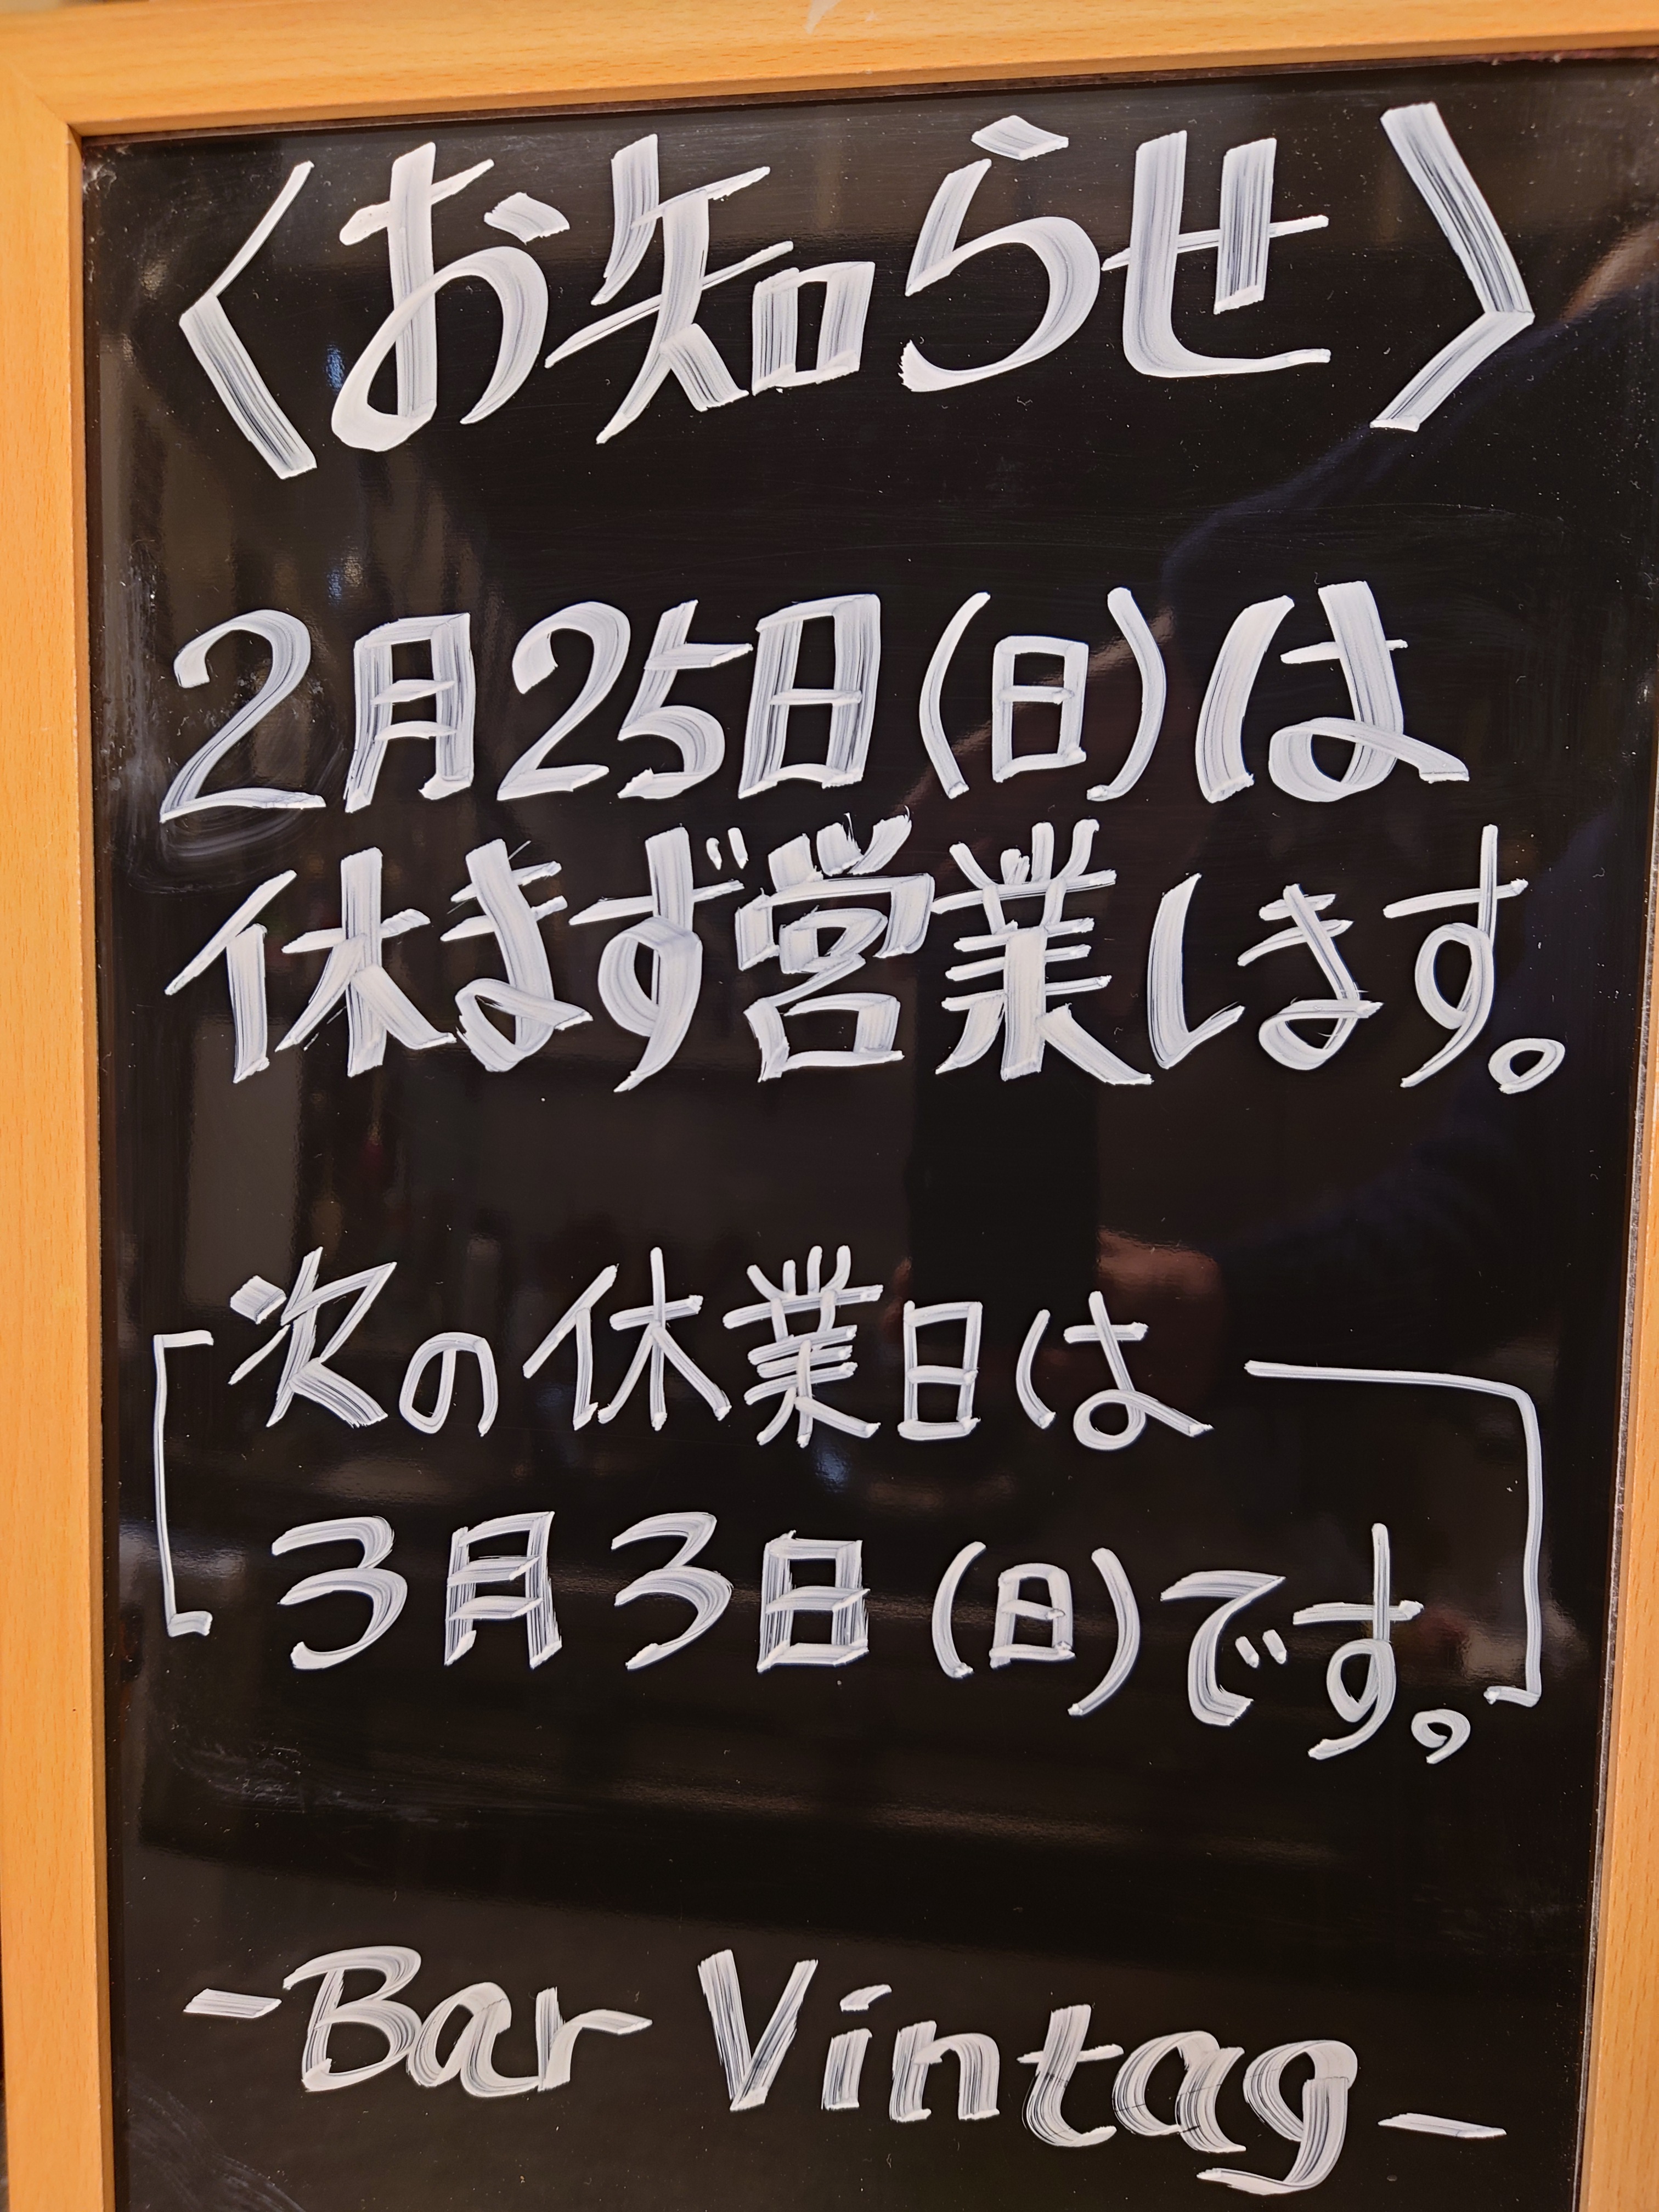 〈お知らせ〉
2月25日(日)は
休まず営業します。
「次の休業日は
3月3日(日)です。」
-Bar Vintag-